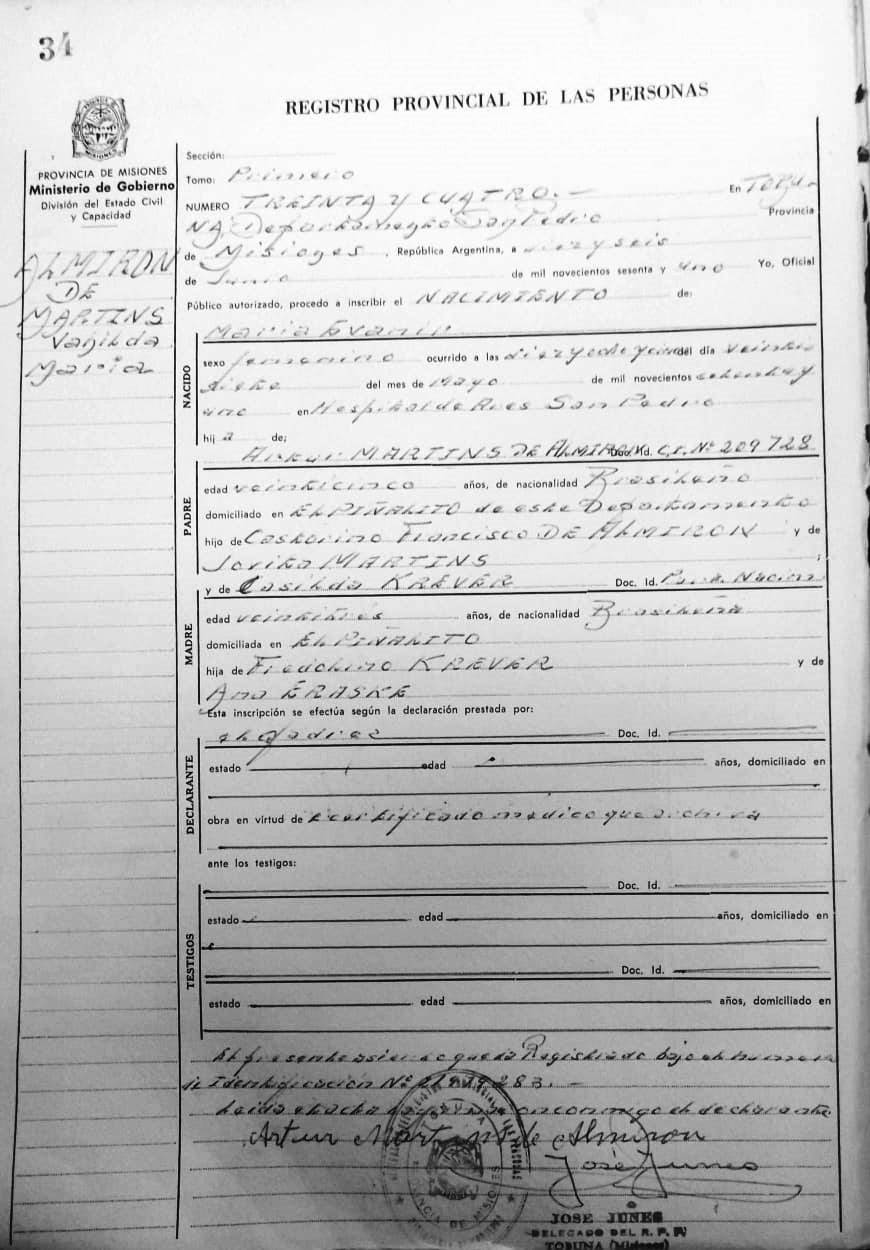 34
REGISTRO PROVINCIAL DE LAS PERSONAS
PROVINCIA DE MISIONES
Ministerio de Gobierno
División del Estado Civil
y Capacidad
ALMIRON
DE
MARTINS
Maria
Sección:
Tomo: Primero
NUMERO TREINTA Y CUATRO.- En Tobu-
NA, Departamento San Pedro Provincia
de Misiones, República Argentina, a diezyseis
de Junio de mil novecientos sesenta y uno Yo, Oficial
Público autorizado, procedo a inscribir el NACIMIENTO de:
NACIDO
Maria
sexo femenino ocurrido a las del día veinti
siete del mes de Mayo de mil novecientos ochenta y
uno en Hospital de San Pedro
hij a de;
PADRE
Artur MARTINS DE ALMIRON Doc. Id. C.I. Nº 209728
edad veinticinco años, de nacionalidad Brasileño
domiciliado en EL PIÑALITO de este Departamento
hijo de Francisco DE ALMIRON y de
MARTINS ;
y de Casilda KREVER Doc. Id.
MADRE
edad veintitrés años, de nacionalidad Brasileña
domiciliada en EL PIÑALITO
hija de KREVER y de
Ana ERASKE
Esta inscripción se efectúa según la declaración prestada por:
DECLARANTE
Doc. Id.
estado edad años, domiciliado en
obra en virtud de certificado médico que archiva
ante los testigos:
TESTIGOS
Doc. Id.
estado edad años, domiciliado en
Doc. Id.
estado edad años, domiciliado en
El presente queda Registrado bajo el numero
de Identificación Nº
Leida el acta conmigo el declarante.
Artur Martins de Almiron
José Junes
JOSE JUNES
DELEGADO DEL R. P. P.
TOBUNA (Misiones)